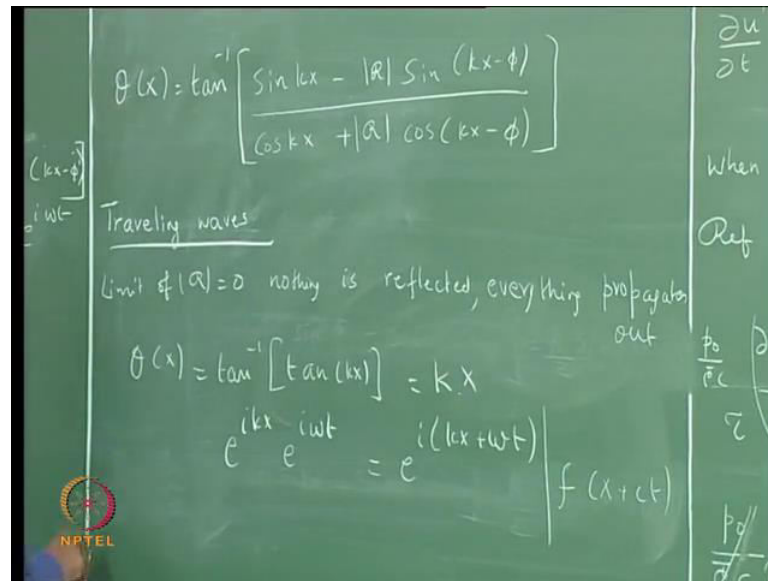 θ(x) = tan⁻¹ [ (sin kx - |R| sin (kx-φ)) / (cos kx + |R| cos (kx-φ)) ]
(kx-φ)]
iωt
Traveling waves
Limit of |R| = 0 nothing is reflected, everything propagates
out
θ(x) = tan⁻¹ [tan (kx)] = k x
e^{ikx} e^{iωt} = e^{i(kx+ωt)} | f (x+ct)
∂u'
∂t
When
Ref
p₀
τ
p₀
NPTEL